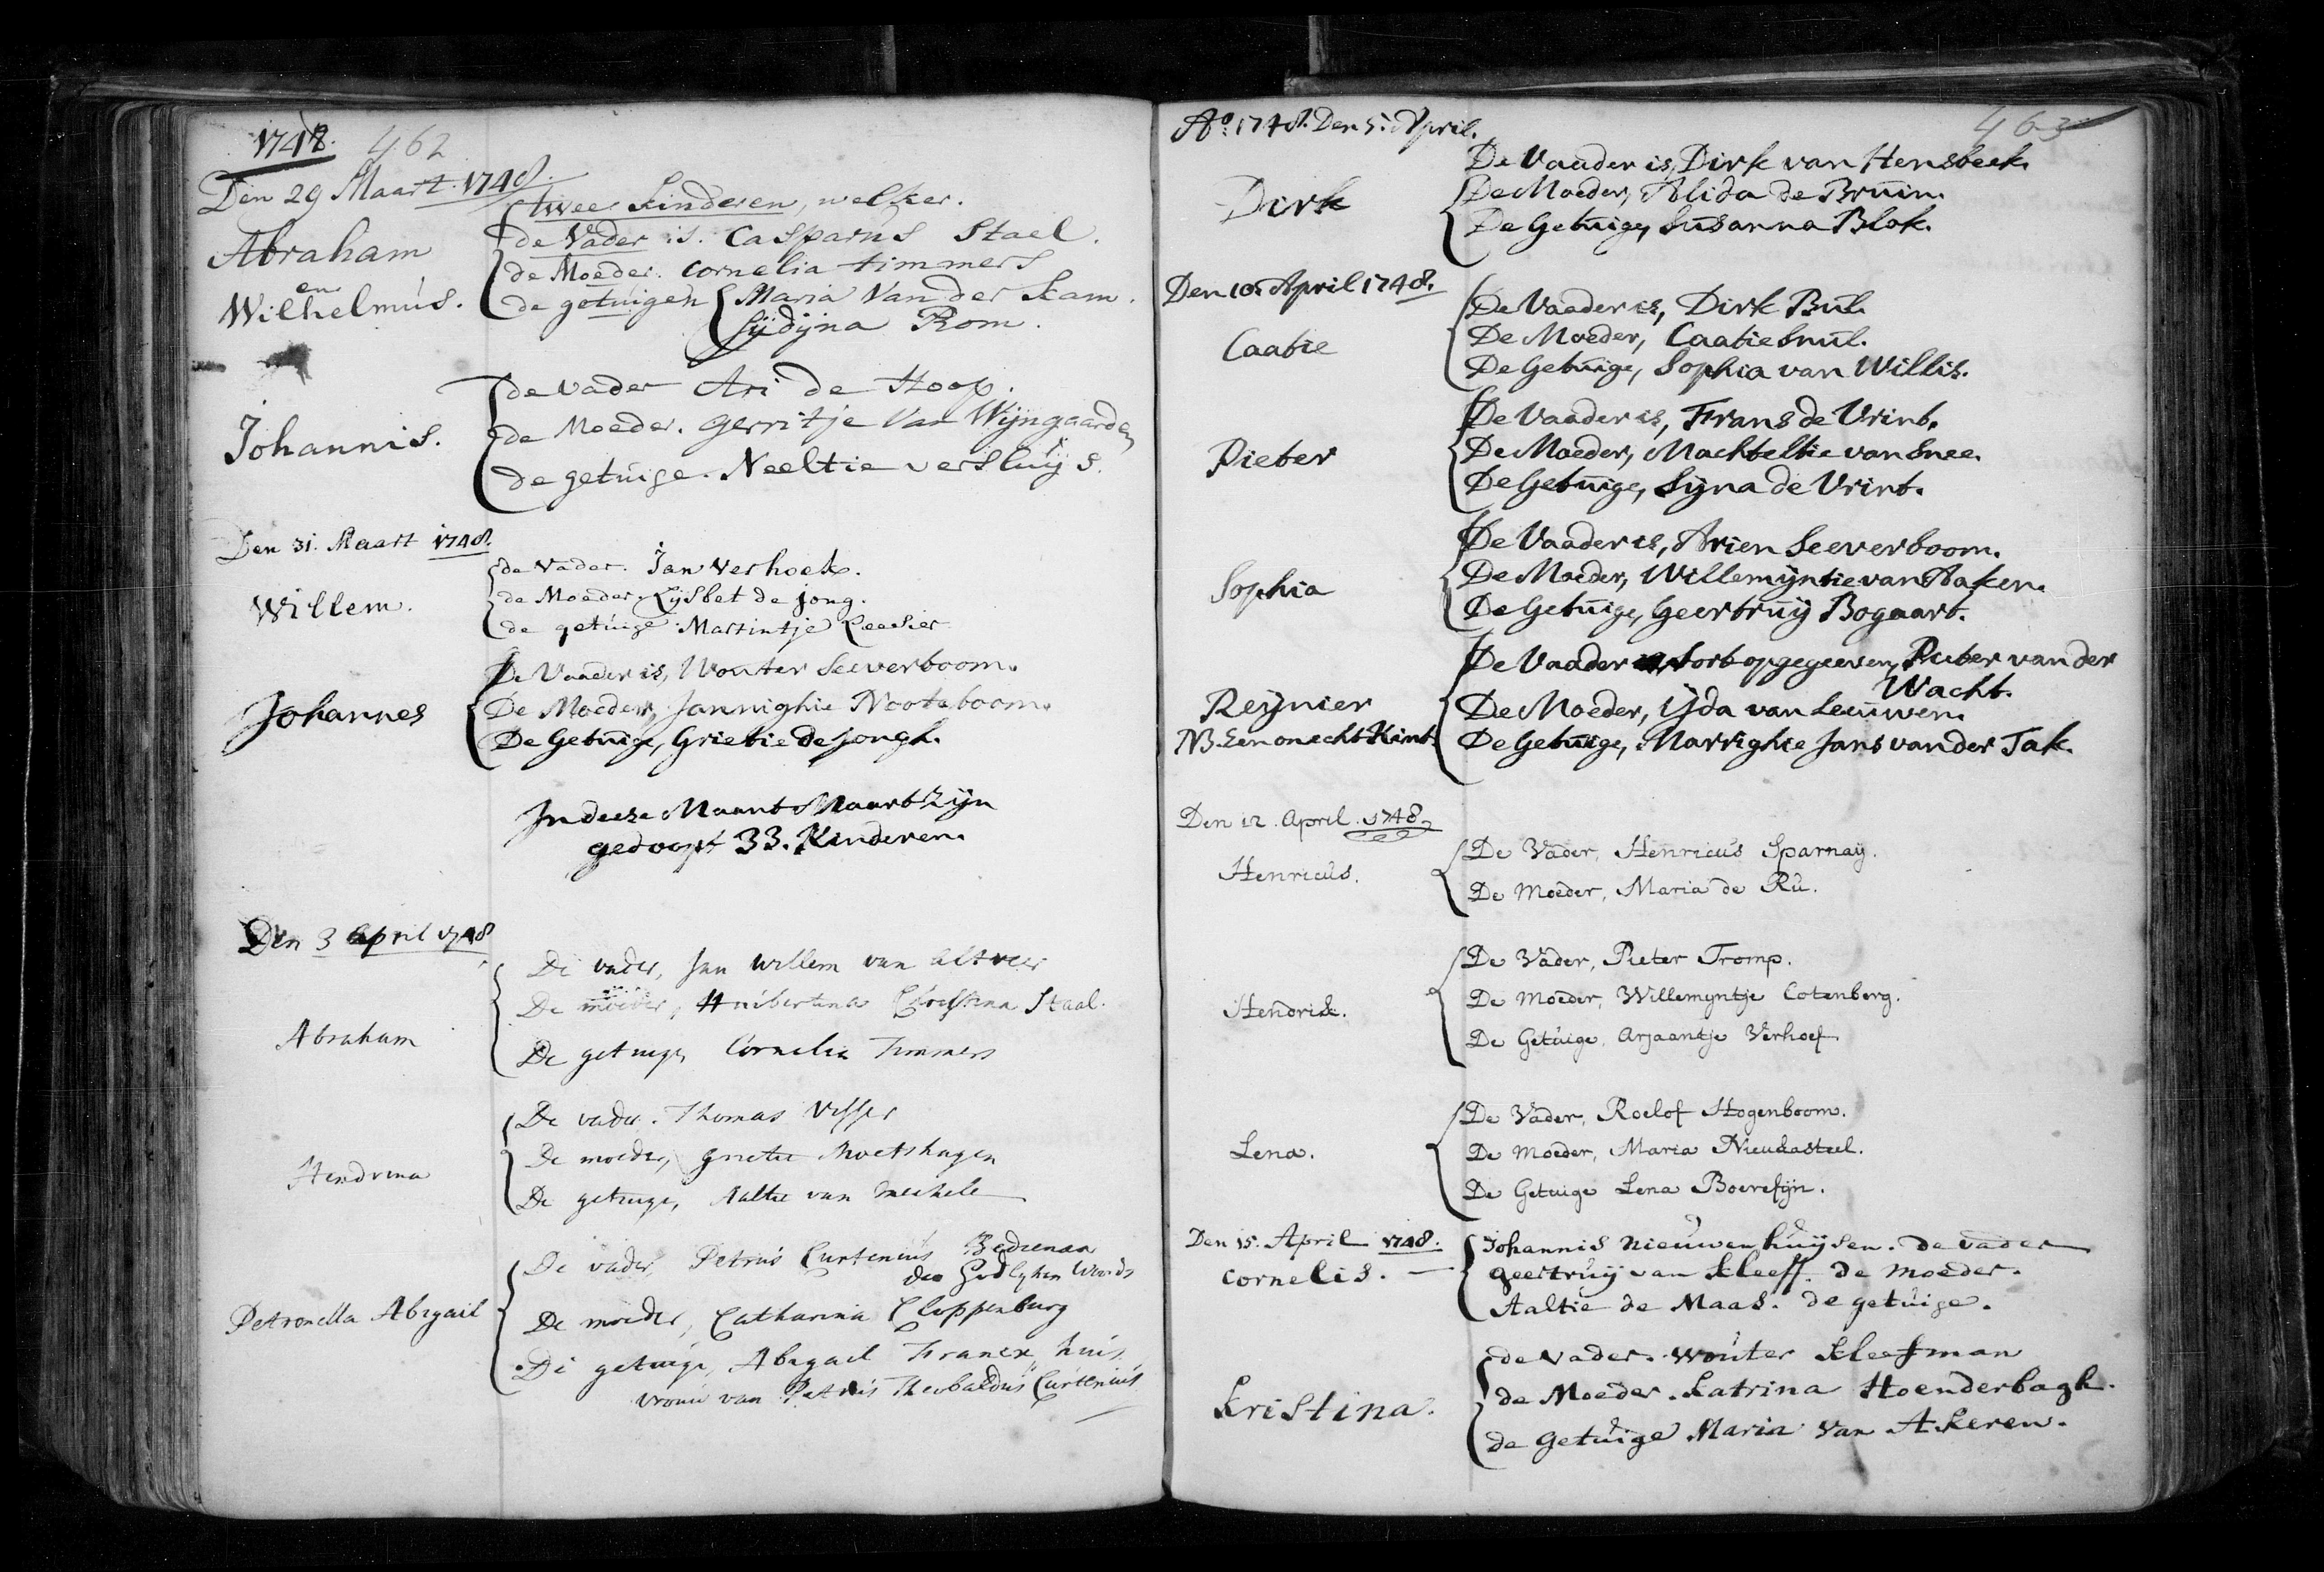 1748. 462
Den 29 Maart. 1748.
Abraham
en
Wilhelmus.
twee kinderen, welker.
de Vader is. Casparus Stael.
de Moeder. Cornelia timmers
de getuigen Maria Van der Kam.
Sijdijna Rom.
Johannis.
de vader Ari de Hoop.
de Moeder. gerritje Van Wijngaarden
de getuige. Neeltie versluijs.
Den 31. Maart 1748.
Willem.
de Vader. Jan Verhoek.
de Moeder. Lijsbet de jong.
de getuige Martintje
Johannes
De Vaader is, Wouter Seeverboom.
De Moeder, Jannighie Nooteboom.
De Getuige, Grietie de jongh.
In deeze Maant Maart zijn
gedoopt 33. Kinderen.
Den 3 April 1748
Abraham
De vader, Jan Willem van altveer
De moeder, Huibertina Christina Staal.
De getuige, Cornelia Timmers
Hendrina
De vader. Thomas Visser
De moeder, grietie Moetshagen
De getuige, Aaltie van
Petronella Abigail
De vader, Petrus Curtenius Bedienaar
des Godlyken Woords
De moeder, Catharina Cloppenburg
De getuige, Abigael Franex, huis
vrouw van Petrus Theobaldus Curtenius
463
Ao. 1748. Den 5. April.
Dirk
De Vaader is, Dirk van Hensbeek.
De Moeder, Alida de Bruin.
De Getuige, Susanna Blok.
Den 10. April 1748.
Caatie
De Vaader is, Dirk Bul.
De Moeder, Caatie Snul.
De Getuige, Sophia van Willis.
Pieter
De Vaader is, Frans de Vrint.
De Moeder, Machteltie van Snee.
De Getuige, Sijna de Vrint.
Sophia
De Vaader is, Arien Seeverboom.
De Moeder, Willemijntie van Aaken.
De Getuige, Geertruij Bogaart.
Reijnier
NB. Een onecht Kint.
De Vaader wort opgegeeven, Pieter van der
Wacht.
De Moeder, Ijda van Leeuwen.
De Getuige, Marrighie Jans van der Tak.
Den 12. April. 1748.
Henricus.
De Vader, Henricus Sparnaij.
De Moeder, Maria de Ru.
Hendrik.
De Vader, Pieter Tromp.
De Moeder, Willemyntje Cotenberg.
De Getuige. Arjaantje Verhoef
Lena.
De Vader, Roelof Hogenboom.
De Moeder, Maria Nieukasteel.
De Getuige Lena Boerefijn.
Den 15. April 1748.
Cornelis.
Johannis Nieuwenhuijsen. de vader
geertruij van Kleeff. de moeder.
Aaltie de Maas. de getuige.
Kristina.
de vader. wouter Kleefman
de Moeder. Katrina Hoenderbagh.
de getuige Maria Van Akeren.